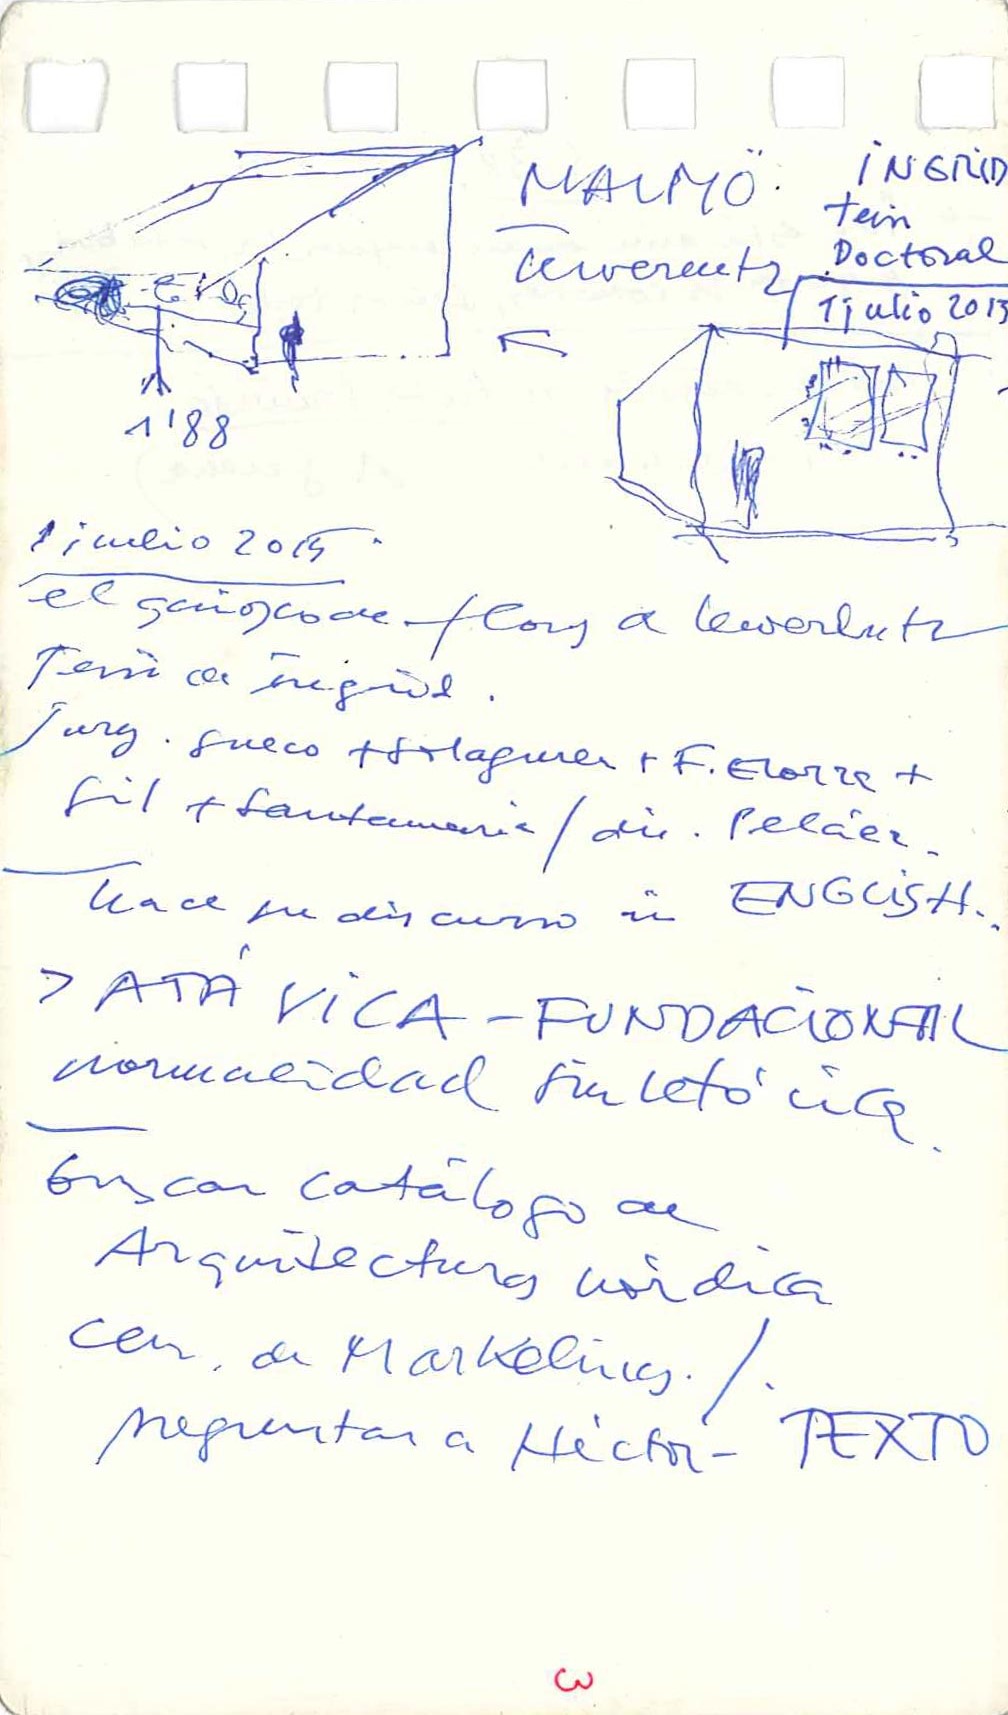 MALMÖ.
Lewerentz
INGRID
tesis
Doctoral
1 julio 2015
1'88
1 julio 2015
el quiosco de flores de Lewerentz
Tesis de Ingrid.
Jurg. sueco + + F. Elorza +
Gil + Santamaría / dir. Peláez.
hace su discurso in ENGLISH.
> ATÁVICA - FUNDACIONAL
normalidad
buscar catálogo de
Arquitectura nórdica
cem. de Markelius. /.
preguntar a Héctor - TEXTO
3